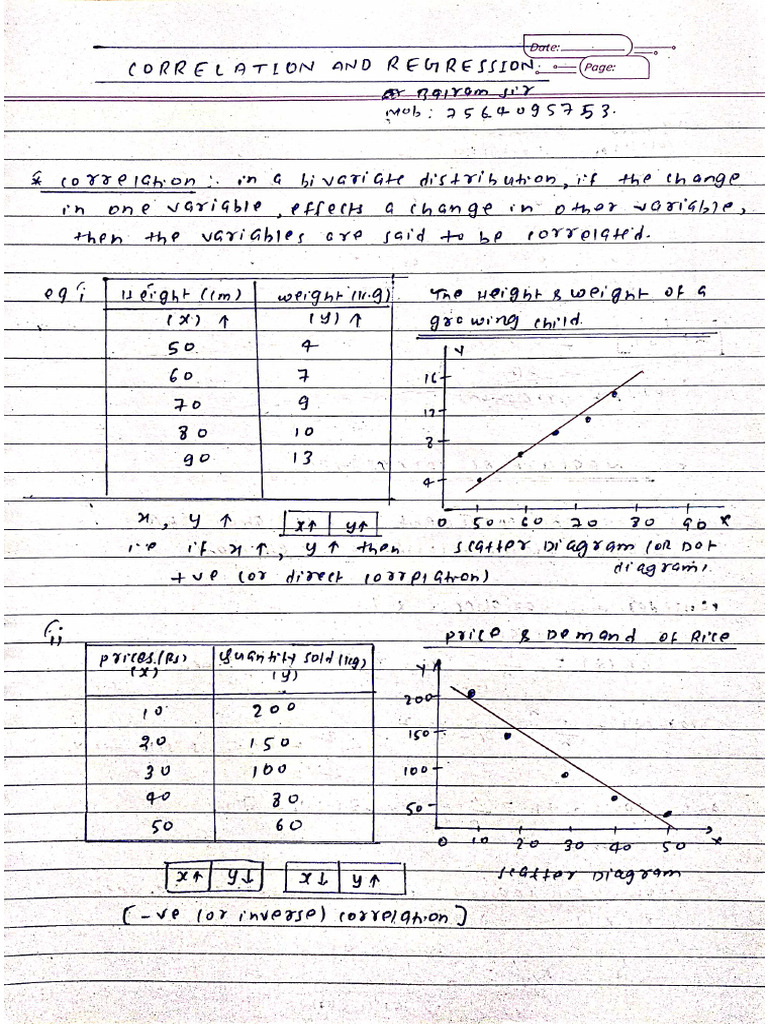 Date:
CORRELATION AND REGRESSION.
Page:
Balram sir
Mob: 7564095753.
* Correlation :. in a bivariate distribution, if the change
in one variable, effects a change in other variable,
then the variables are said to be correlated.
eg i Height (cm) weight (K.g) The Height & weight of a
(x) ↑ (y) ↑ growing child.
50 4
60 7
70 9
80 10
90 13
Y
16
12
8
4
0 50 60 70 80 90 x
x, y ↑ x↑ y↑
i.e if x ↑, y ↑ then scatter Diagram (or Dot
diagram).
+ve (or direct correlation)
ii
Price & Demand of Rice
prices.(Rs) Quantity sold (kg)
(x) (y)
10 200
20 150
30 100
40 80
50 60
Y
200
150
100
50
0 10 20 30 40 50 x
x↑ y↓ x↓ y↑ scatter Diagram
(-ve (or inverse) correlation)